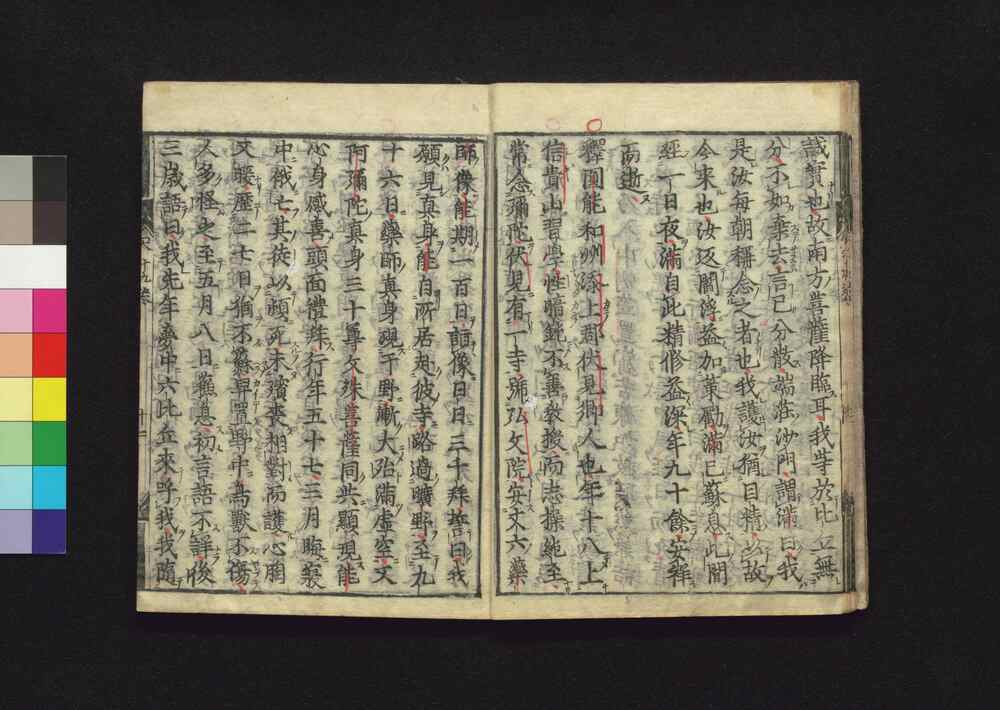 誠實也故南方菩薩降臨耳我等於比丘無
分不如棄去言已分散端在沙門謂滿曰我
是汝每朝稱念之者也我護汝猶目精以故
今來也汝返閻浮益加策勵滿已蘇息此間
經一日夜滿自此精修益深年九十餘安禪
而逝
釋圓能和州添上郡伏見鄉人也年十八上
信貴山習學性暗鈍不善敎授而志操純至
常念彌陀伏見有一寺號弘文院安丈六藥
師像能期一百日詣像日日三千拜誓曰我
願見真身能自所居赴彼寺略過曠野至九
十六日藥師真身現于野漸大弥滿虛空又
阿彌陀真身三十尊文殊菩薩同共顯現能
心身感喜頭面禮殊行年五十七三月晦寢
中俄亡其徒以頓死未殯喪相對而護心胸
又暖歷二七日猶不蘇早置野中鳥獸不傷
人多怪之至五月八日蘇息初言語不詳後
三歲語曰我先年夢中六比丘來呼我我隨